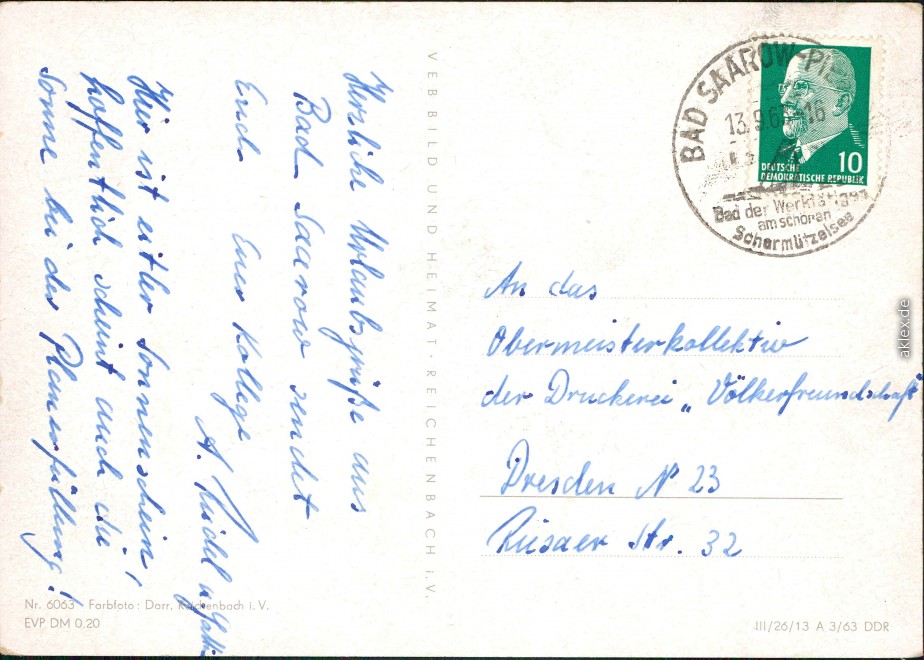 Herzliche Urlaubsgrüße aus
Bad Saarow sendet
Euch Euer Kollege
A. u. Gattin
Hier ist eitler Sonnenschein,
hoffentlich scheint auch die
Sonne bei der Planerfüllung!
VEB BILD UND HEIMAT · REICHENBACH i. V.
Nr. 6063 Farbfoto: Darr, Reichenbach i. V.
EVP DM 0,20
BAD SAAROW-PIE
13.9.6 -16
Bad der Werktätigen
am schönen
Scharmützelsee
10
DEUTSCHE
DEMOKRATISCHE REPUBLIK
An das
Obermeisterkollektiv
der Druckerei „Völkerfreundschaft"
Dresden N 23
Riesaer Str. 32
III/26/13 A 3/63 DDR
aklex.de